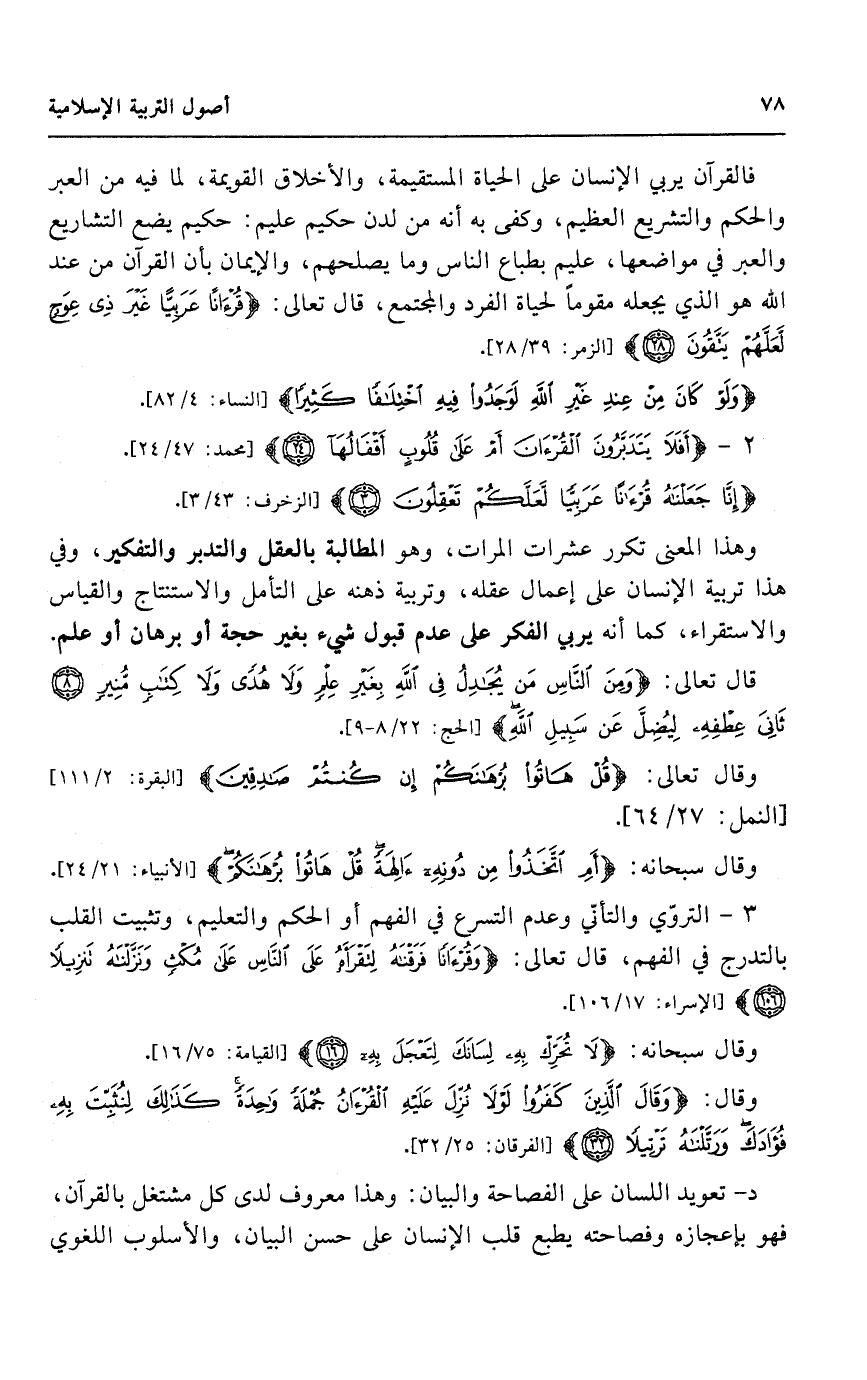 ٧٨ أصول التربية الإسلامية
فالقرآن يربي الإنسان على الحياة المستقيمة، والأخلاق القويمة، لما فيه من العبر
والحكم والتشريع العظيم، وكفى به أنه من لدن حكيم عليم: حكيم يضع التشاريع
والعبر في مواضعها، عليم بطباع الناس وما يصلحهم، والإيمان بأن القرآن من عند
الله هو الذي يجعله مقوماً لحياة الفرد والمجتمع، قال تعالى: ﴿قُرْءَانًا عَرَبِيًّا غَيْرَ ذِى عِوَجٍ
لَّعَلَّهُمْ يَتَّقُونَ ۝٢٨﴾ [الزمر: ٢٨/٣٩].
﴿وَلَوْ كَانَ مِنْ عِندِ غَيْرِ ٱللَّهِ لَوَجَدُوا۟ فِيهِ ٱخْتِلَـٰفًا كَثِيرًا﴾ [النساء: ٨٢/٤].
٢ - ﴿أَفَلَا يَتَدَبَّرُونَ ٱلْقُرْءَانَ أَمْ عَلَىٰ قُلُوبٍ أَقْفَالُهَآ ۝٢٤﴾ [محمد: ٢٤/٤٧].
﴿إِنَّا جَعَلْنَـٰهُ قُرْءَٰنًا عَرَبِيًّا لَّعَلَّكُمْ تَعْقِلُونَ ۝٣﴾ [الزخرف: ٣/٤٣].
وهذا المعنى تكرر عشرات المرات، وهو المطالبة بالعقل والتدبر والتفكير، وفي
هذا تربية الإنسان على إعمال عقله، وتربية ذهنه على التأمل والاستنتاج والقياس
والاستقراء، كما أنه يربي الفكر على عدم قبول شيء بغير حجة أو برهان أو علم.
قال تعالى: ﴿وَمِنَ ٱلنَّاسِ مَن يُجَـٰدِلُ فِى ٱللَّهِ بِغَيْرِ عِلْمٍ وَلَا هُدًى وَلَا كِتَـٰبٍ مُّنِيرٍ ۝٨
ثَانِىَ عِطْفِهِۦ لِيُضِلَّ عَن سَبِيلِ ٱللَّهِ ۖ﴾ [الحج: ٨/٢٢-٩].
وقال تعالى: ﴿قُلْ هَاتُوا۟ بُرْهَـٰنَكُمْ إِن كُنتُمْ صَـٰدِقِينَ﴾ [البقرة: ١١١/٢]
[النمل: ٦٤/٢٧].
وقال سبحانه: ﴿أَمِ ٱتَّخَذُوا۟ مِن دُونِهِۦٓ ءَالِهَةً ۖ قُلْ هَاتُوا۟ بُرْهَـٰنَكُمْ ۖ﴾ [الأنبياء: ٢٤/٢١].
٣ - التروّي والتأنّي وعدم التسرع في الفهم أو الحكم والتعليم، وتثبيت القلب
بالتدرج في الفهم، قال تعالى: ﴿وَقُرْءَانًا فَرَقْنَـٰهُ لِتَقْرَأَهُۥ عَلَى ٱلنَّاسِ عَلَىٰ مُكْثٍ وَنَزَّلْنَـٰهُ تَنزِيلًا
۝١٠٦﴾ [الإسراء: ١٠٦/١٧].
وقال سبحانه: ﴿لَا تُحَرِّكْ بِهِۦ لِسَانَكَ لِتَعْجَلَ بِهِۦٓ ۝١٦﴾ [القيامة: ١٦/٧٥].
وقال: ﴿وَقَالَ ٱلَّذِينَ كَفَرُوا۟ لَوْلَا نُزِّلَ عَلَيْهِ ٱلْقُرْءَانُ جُمْلَةً وَٰحِدَةً ۚ كَذَٰلِكَ لِنُثَبِّتَ بِهِۦ
فُؤَادَكَ ۖ وَرَتَّلْنَـٰهُ تَرْتِيلًا ۝٣٢﴾ [الفرقان: ٣٢/٢٥].
د- تعويد اللسان على الفصاحة والبيان: وهذا معروف لدى كل مشتغل بالقرآن،
فهو بإعجازه وفصاحته يطبع قلب الإنسان على حسن البيان، والأسلوب اللغوي